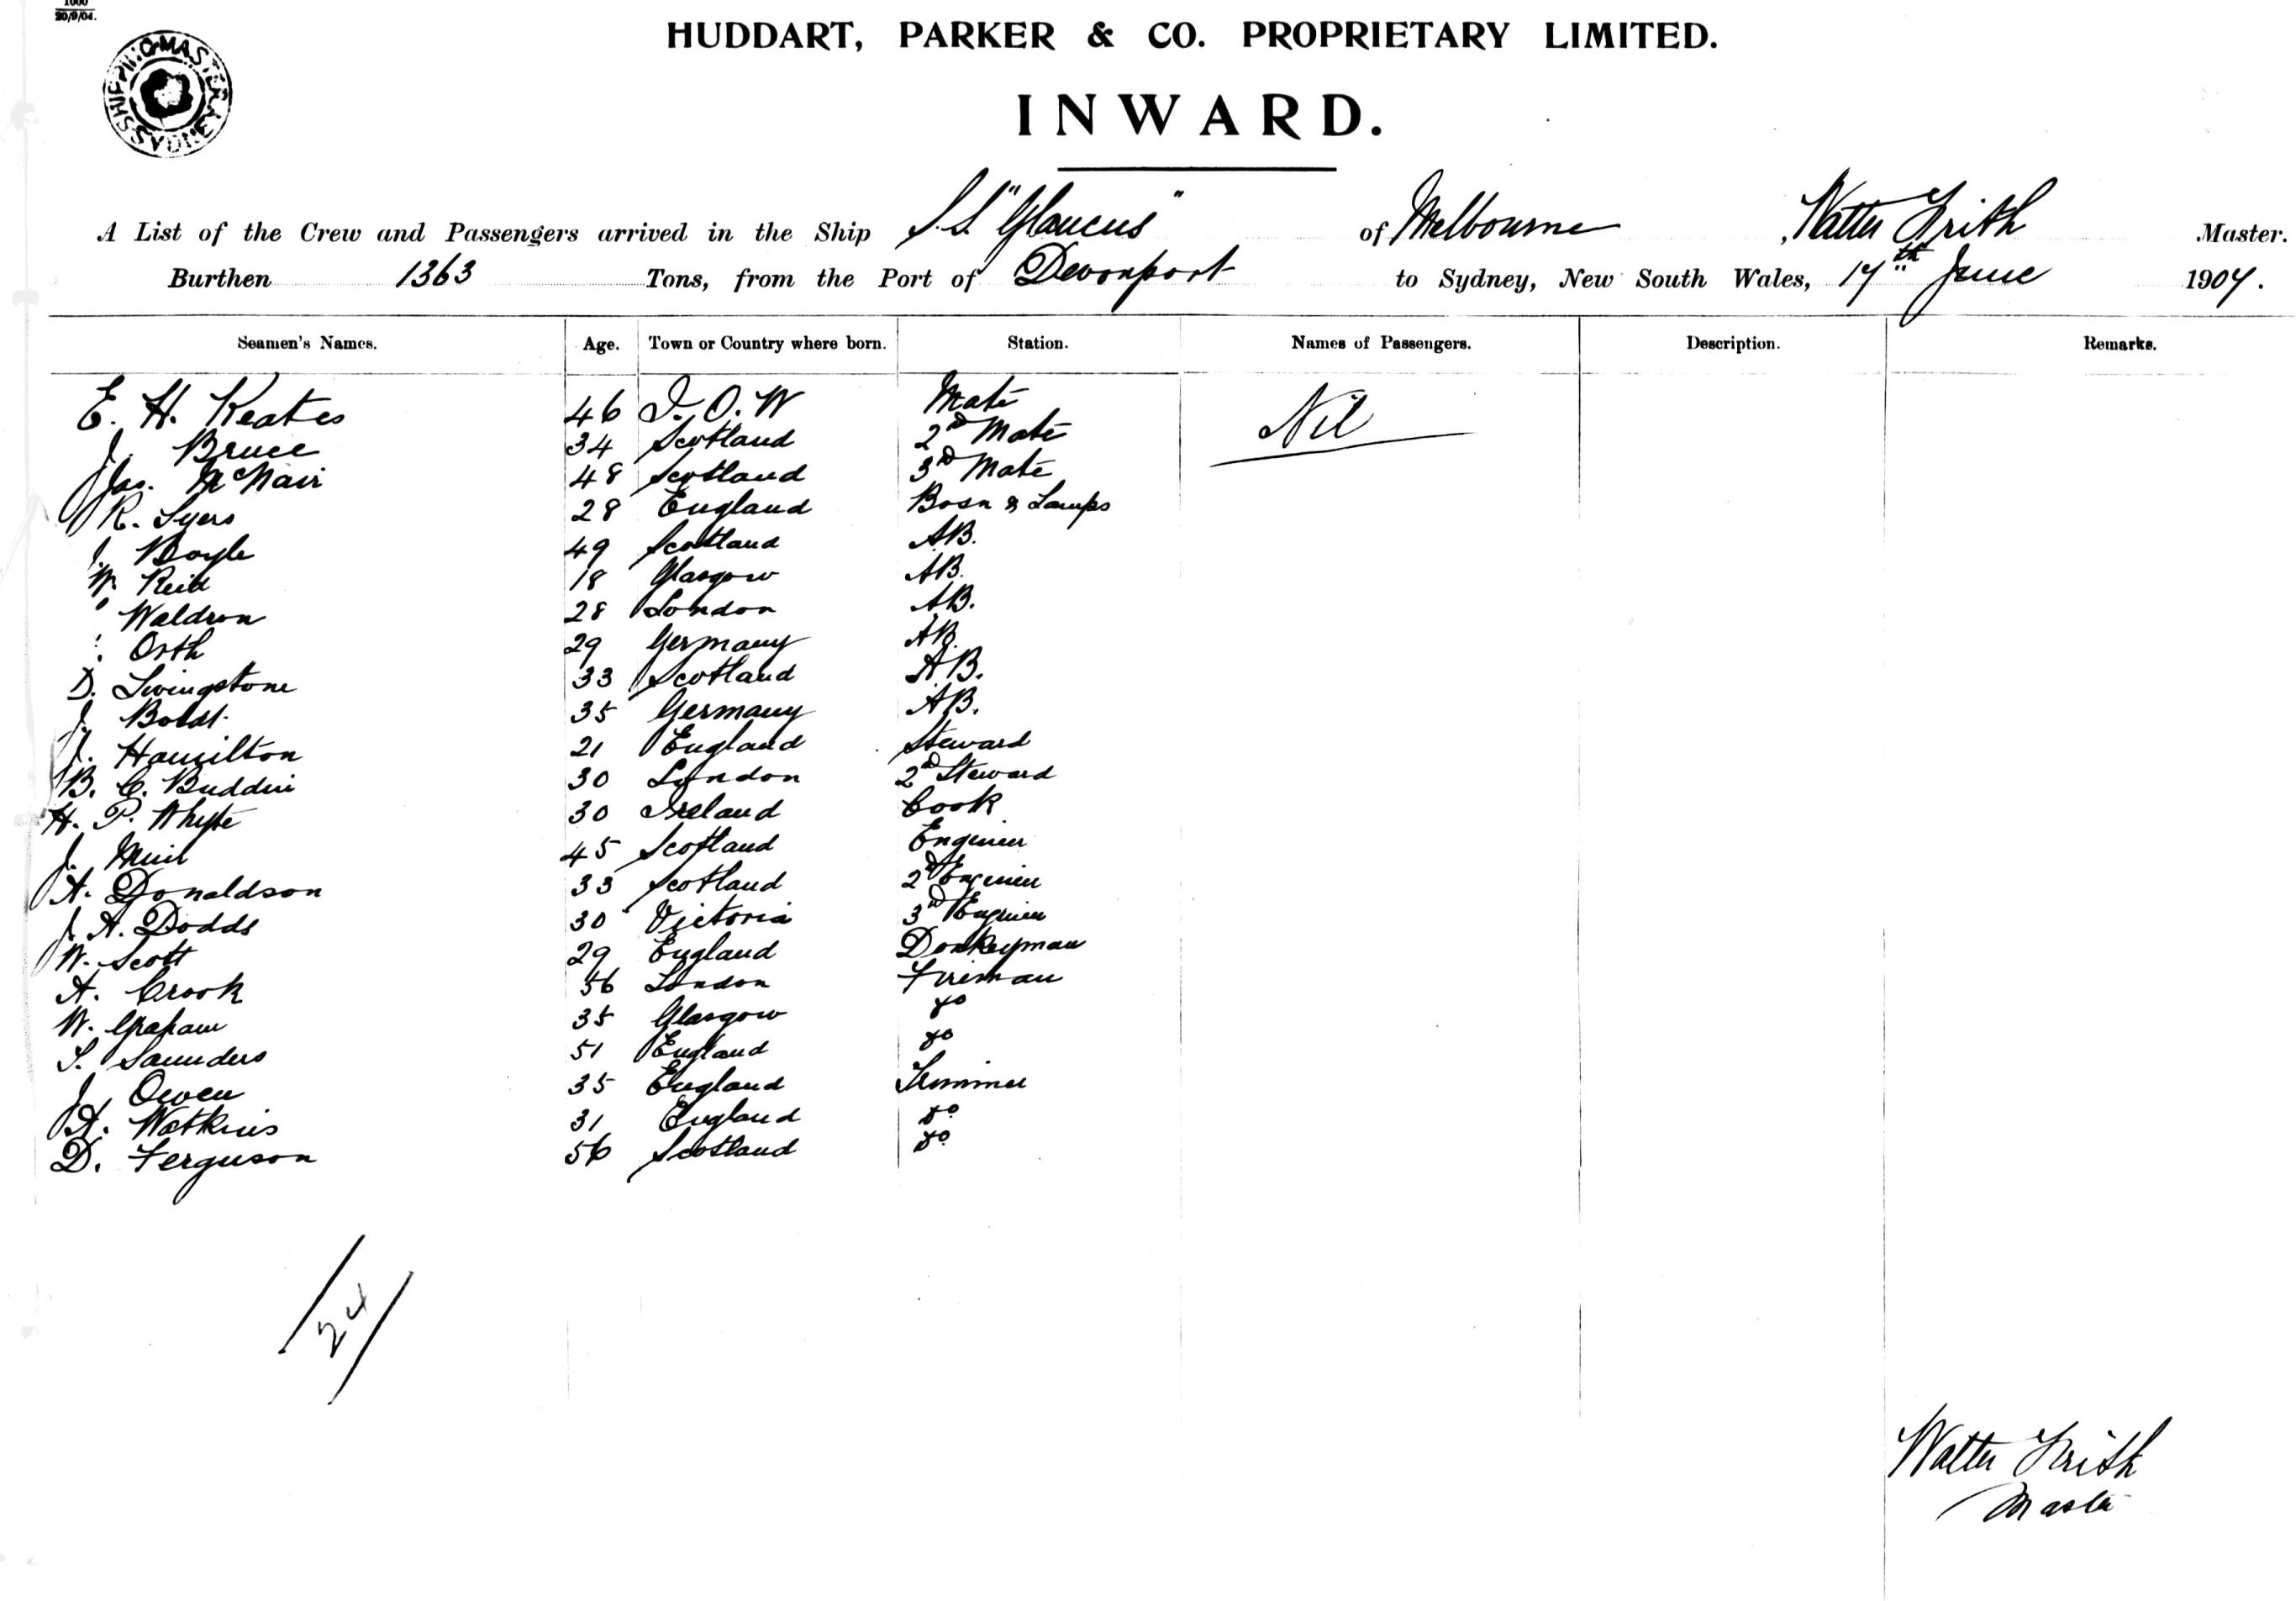 1000
20/9/04.
SHIPPING MASTER SYDNEY
HUDDART, PARKER & CO. PROPRIETARY LIMITED.
INWARD.
A List of the Crew and Passengers arrived in the Ship S.S. "Glaucus" of Melbourne, Walter Frith Master.
Burthen 1363 Tons, from the Port of Devonport to Sydney, New South Wales, 17th June 1907.
Seamen's Names. Age. Town or Country where born. Station. Names of Passengers. Description. Remarks.
E. H. Keates 46 I.O.W Mate Nil
J. Bruce 34 Scotland 2nd Mate
Jas. McNair 48 Scotland 3rd Mate
R. Syers 28 England Bosn & Lamps
J. Boyle 49 Scotland A.B.
W. Reid 18 Glasgow A.B.
Waldron 28 London A.B.
Orth 29 Germany A.B.
D. Livingstone 33 Scotland A.B.
J. Boldt 35 Germany A.B.
J. Hamilton 21 England Steward
B. C. Buddin 30 London 2nd Steward
H. P. Whyte 30 Ireland Cook
J. Muir 45 Scotland Engineer
A. Donaldson 33 Scotland 2nd Engineer
J. A. Dodds 30 Victoria 3rd Engineer
W. Scott 29 England Donkeyman
A. Crook 56 London Fireman
W. Graham 35 Glasgow do
S. Saunders 51 England do
J. Owen 35 England Trimmer
A. Watkins 31 England do
D. Ferguson 56 Scotland do
24
Walter Frith
Master